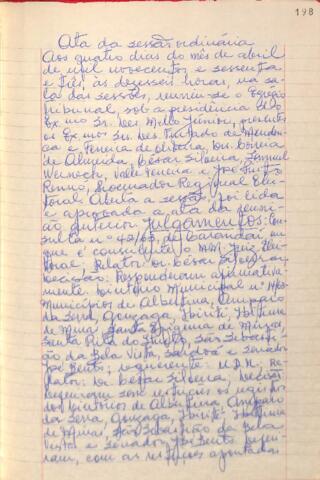 198
Ata da sessão ordinária
Aos quatro dias do mês de abril
de mil novecentos e sessenta
e três, às dezesseis horas, na sa-
la das sessões, reuniu-se o Egrégio
Tribunal, sob a presidência do
Exmo Sr. Des. Mello Júnior, presentes
os Exmos Srs. Des. Furtado de Mendon-
ça e Pereira de Oliveira, Drs. 
de Almeida, César Silveira, Samuel
Werneck, Valle Ferreira e José 
Renno, Procurador Regional Elei-
toral. Aberta a sessão, foi lida
e aprovada a ata da reuni-
ão anterior. Julgamentos: Con-
sulta nº 42/63, de Carandaí em
que é consulente o MM. Juiz Elei-
toral. Relator: Dr. César Silveira.
Decisão: Responderam afirmativa-
mente. Diretório Municipal nº
Municípios de Albertina, Amparo
da Serra, Gonzaga, Ibiriti, 
de Minas, Santa Efigênia de Minas,
Santa Rita do Itueto, São Sebasti-
ão da Bela Vista, Sardoá e Senador
José Bento; requerente: U.D.N.; Re-
lator: Dr. César Silveira, Decisão:
Deferiram sem restrições os registros
dos Diretórios de Albertina, Amparo
da Serra, Gonzaga, Ibiriti, 
de Minas, São Sebastião da Bela
Vista e Senador José Bento, deferi-
ram, com as restrições apontadas